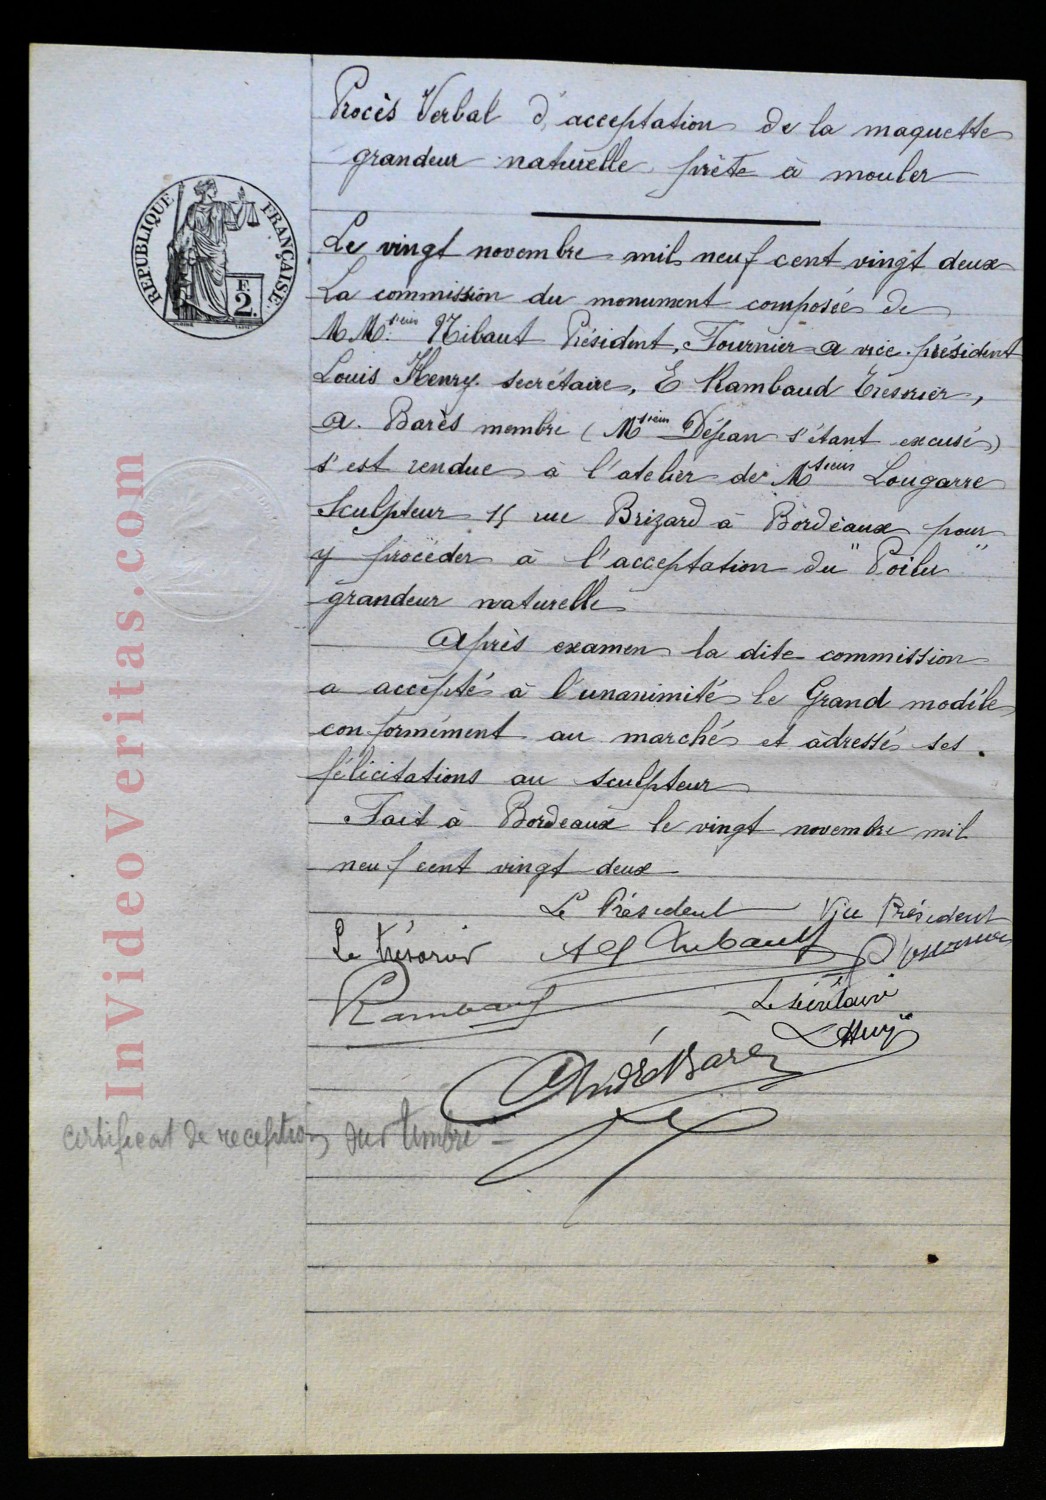 Procès Verbal d'acceptation de la maquette
grandeur naturelle prête à mouler
RÉPUBLIQUE FRANÇAISE.
F.
2.
Le vingt novembre mil neuf cent vingt deux
La commission du monument composée de
M.M.sieurs Président, Fournier A vice-président
Louis Henry secrétaire, E Rambaud Trésorier,
A. Barès membre (Msieur Déjean s'étant excusé)
s'est rendue à l'atelier de Msieur Lougarre
Sculpteur 15 rue Brizard à Bordeaux pour
y procéder à l'acceptation du "Poilu"
grandeur naturelle
Après examen la dite commission
a accepté à l'unanimité le Grand modèle
conformément au marché et adressé ses
félicitations au sculpteur
Fait à Bordeaux le vingt novembre mil
neuf cent vingt deux
Le Président Vice Président
Le trésorier
Rambaud
Le secrétaire
L Henry
André Barès
certificat de reception sur timbre -
InVideoVeritas.com